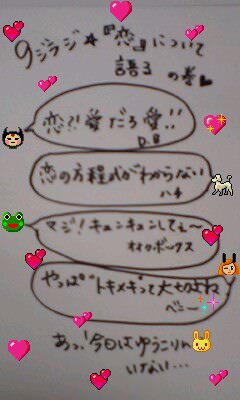 9ジラジ☆『恋』について
語る の巻♥
恋?!愛だろ愛!!
D.B
恋の方程式がわからない
ハチ
マジ!キュンキュンしてぇ〜
オオクボックス
やっぱ"トキメキ"って大切よね
ベニー
あっ!今日はゆうこりん
いけない…